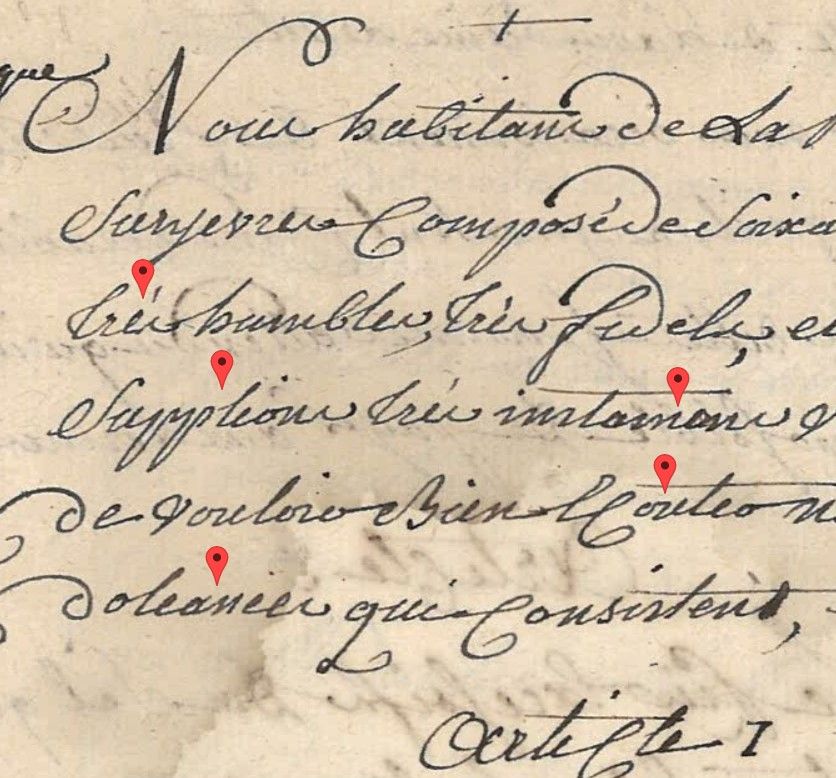 que
Nous habitans de La
Suryevres Composé de Soixa
trés humbles, trés fidels, et
Supplions trés instamens
de vouloir Bien l'Ecouter n
doleances qui Consistent,
Article I